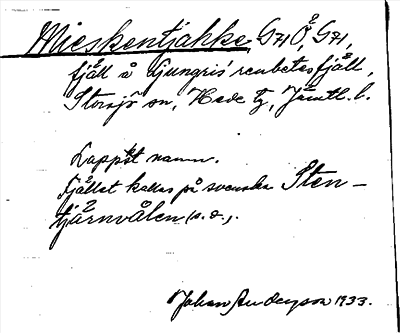 Mieskentjahke, G71Ö, G71,
fjäll å Ljungris' renbetesfjäll,
Storsjö sn, Hede tg, Jämtl. l.
Lappskt namn.
Fjället kallas på svenska Sten-
tjärnvålen (s. o.).
Johan Anderson 1933.